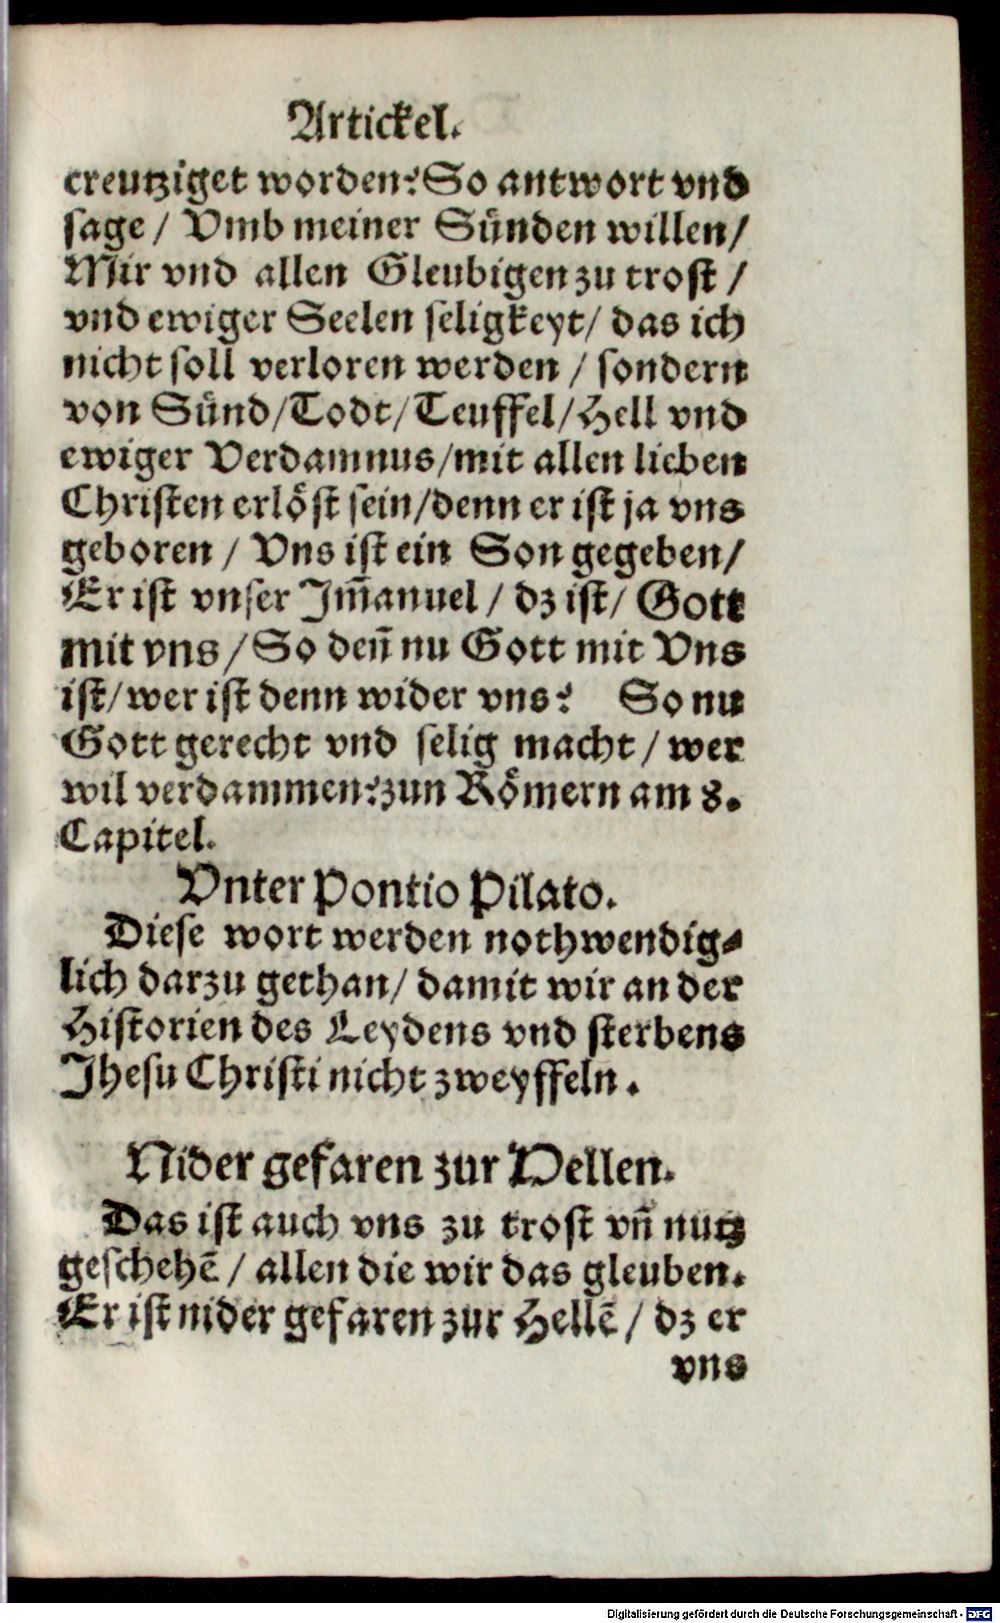 Artickel.
creutziget worden? So antwort vnd
sage / Vmb meiner Sünden willen/
Mir vnd allen Gleubigen zu trost /
vnd ewiger Seelen seligkeyt/ das ich
nicht soll verloren werden / sondern
von Sünd/Todt/Teuffel/Hell vnd
ewiger Verdamnus/mit allen lieben
Christen erlöst sein/denn er ist ja vns
geboren / Vns ist ein Son gegeben/
Er ist vnser Im̄anuel / dz ist/ Gott
mit vns /So den̄ nu Gott mit Vns
ist/wer ist denn wider vns? So nu
Gott gerecht vnd selig macht / wer
wil verdammen? zun Römern am 8.
Capitel.
Vnter Pontio Pilato.
Diese wort werden nothwendig-
lich darzu gethan/ damit wir an der
Historien des Leydens vnd sterbens
Jhesu Christi nicht zweyffeln.
Nider gefaren zur Hellen.
Das ist auch vns zu trost vn̄ nutz
geschehē / allen die wir das gleuben.
Er ist nider gefaren zur Hellē / dz er
vns
Digitalisierung gefördert durch die Deutsche Forschungsgemeinschaft - DFG